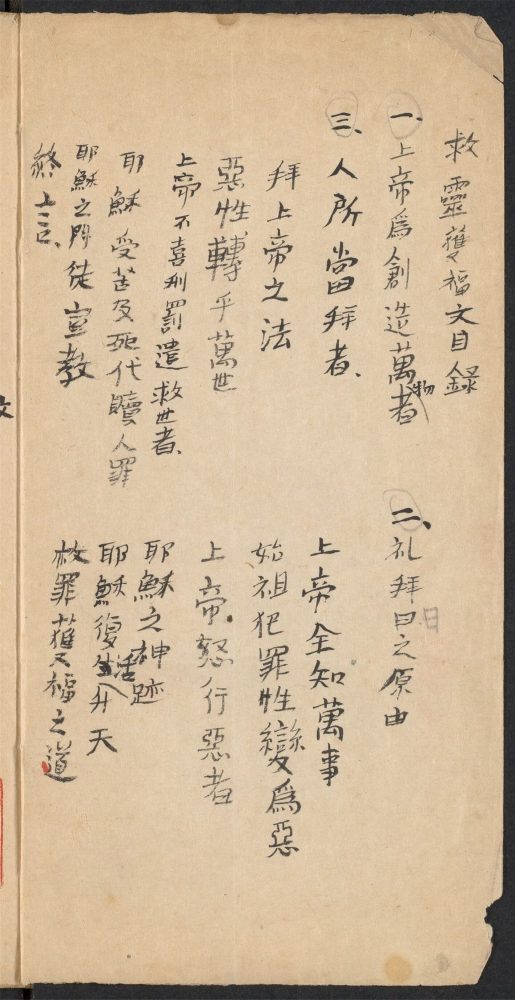 救靈獲福文目錄
一、上帝爲創造萬物者
二、礼拜日之原由
三、人所當拜者、
上帝全知萬事
拜上帝之法
始祖犯罪性變爲惡
惡性轉乎萬世
上帝怒行惡者
上帝不喜刑罰遣救世者、
耶穌之神跡
耶穌受苦及死代贖人罪
耶穌復活升天
耶穌之門徒宣教
赦罪獲福之道
終言、